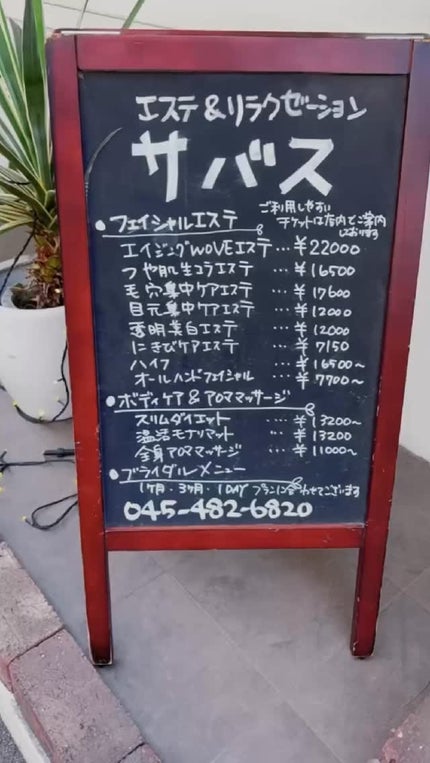 エステ&リラクゼーション
サバス
ご利用しやすい
チケットは店内でご案内
しております
●フェイシャルエステ
エイジングWOVEエステ…¥22000
つや肌生コラエステ…¥16500
毛穴集中ケアエステ…¥17600
目元集中ケアエステ…¥12000
透明美白エステ…¥12000
にきびケアエステ…¥7150
ハイフ…¥16500~
オールハンドフェイシャル…¥7700~
●ボディケア&アロママッサージ
スリムダイエット…¥13200~
温活モナリマット…¥13200
全身アロママッサージ…¥11000~
●ブライダルメニュー
1ヶ月・3ヶ月・1DAY プランに合わせてございます
045-482-6820